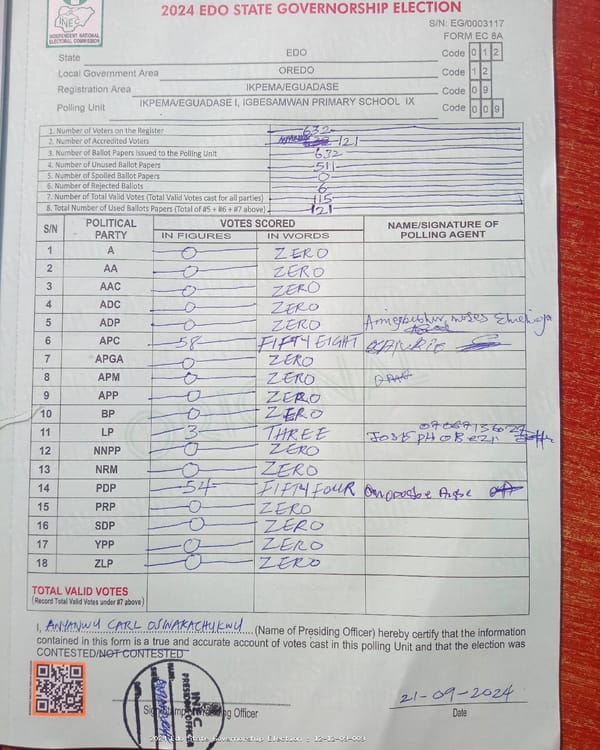 2024 EDO STATE GOVERNORSHIP ELECTION
INEC
INDEPENDENT NATIONAL ELECTORAL COMMISSION
S/N: EG/0003117
FORM EC 8A
State EDO Code 0 1 2
Local Government Area OREDO Code 1 2
Registration Area IKPEMA/EGUADASE Code 0 9
Polling Unit IKPEMA/EGUADASE I, IGBESAMWAN PRIMARY SCHOOL IX Code 0 0 9
1. Number of Voters on the Register 632
2. Number of Accredited Voters 121
3. Number of Ballot Papers Issued to the Polling Unit 632
4. Number of Unused Ballot Papers 511
5. Number of Spoiled Ballot Papers 0
6. Number of Rejected Ballots 6
7. Number of Total Valid Votes (Total Valid Votes cast for all parties) 115
8. Total Number of Used Ballots Papers (Total of #5 + #6 + #7 above) 121
S/N POLITICAL PARTY VOTES SCORED NAME/SIGNATURE OF POLLING AGENT
IN FIGURES IN WORDS
1 A 0 ZERO
2 AA 0 ZERO
3 AAC 0 ZERO
4 ADC 0 ZERO
5 ADP 0 ZERO
6 APC 58 FIFTY EIGHT
7 APGA 0 ZERO
8 APM 0 ZERO
9 APP 0 ZERO
10 BP 0 ZERO
11 LP 3 THREE JOSEPH OBEZI
12 NNPP 0 ZERO
13 NRM 0 ZERO
14 PDP 54 FIFTY FOUR
15 PRP 0 ZERO
16 SDP 0 ZERO
17 YPP 0 ZERO
18 ZLP 0 ZERO
TOTAL VALID VOTES
(Record Total Valid Votes under #7 above)
I, ANYANWU CARL OSINAKACHUKWU (Name of Presiding Officer) hereby certify that the information
contained in this form is a true and accurate account of votes cast in this polling Unit and that the election was
CONTESTED/NOT CONTESTED
INEC
PRESIDING OFFICER
21-09-2024
Officer Date
2024 Edo State Governorship Election : 12-12-09-009